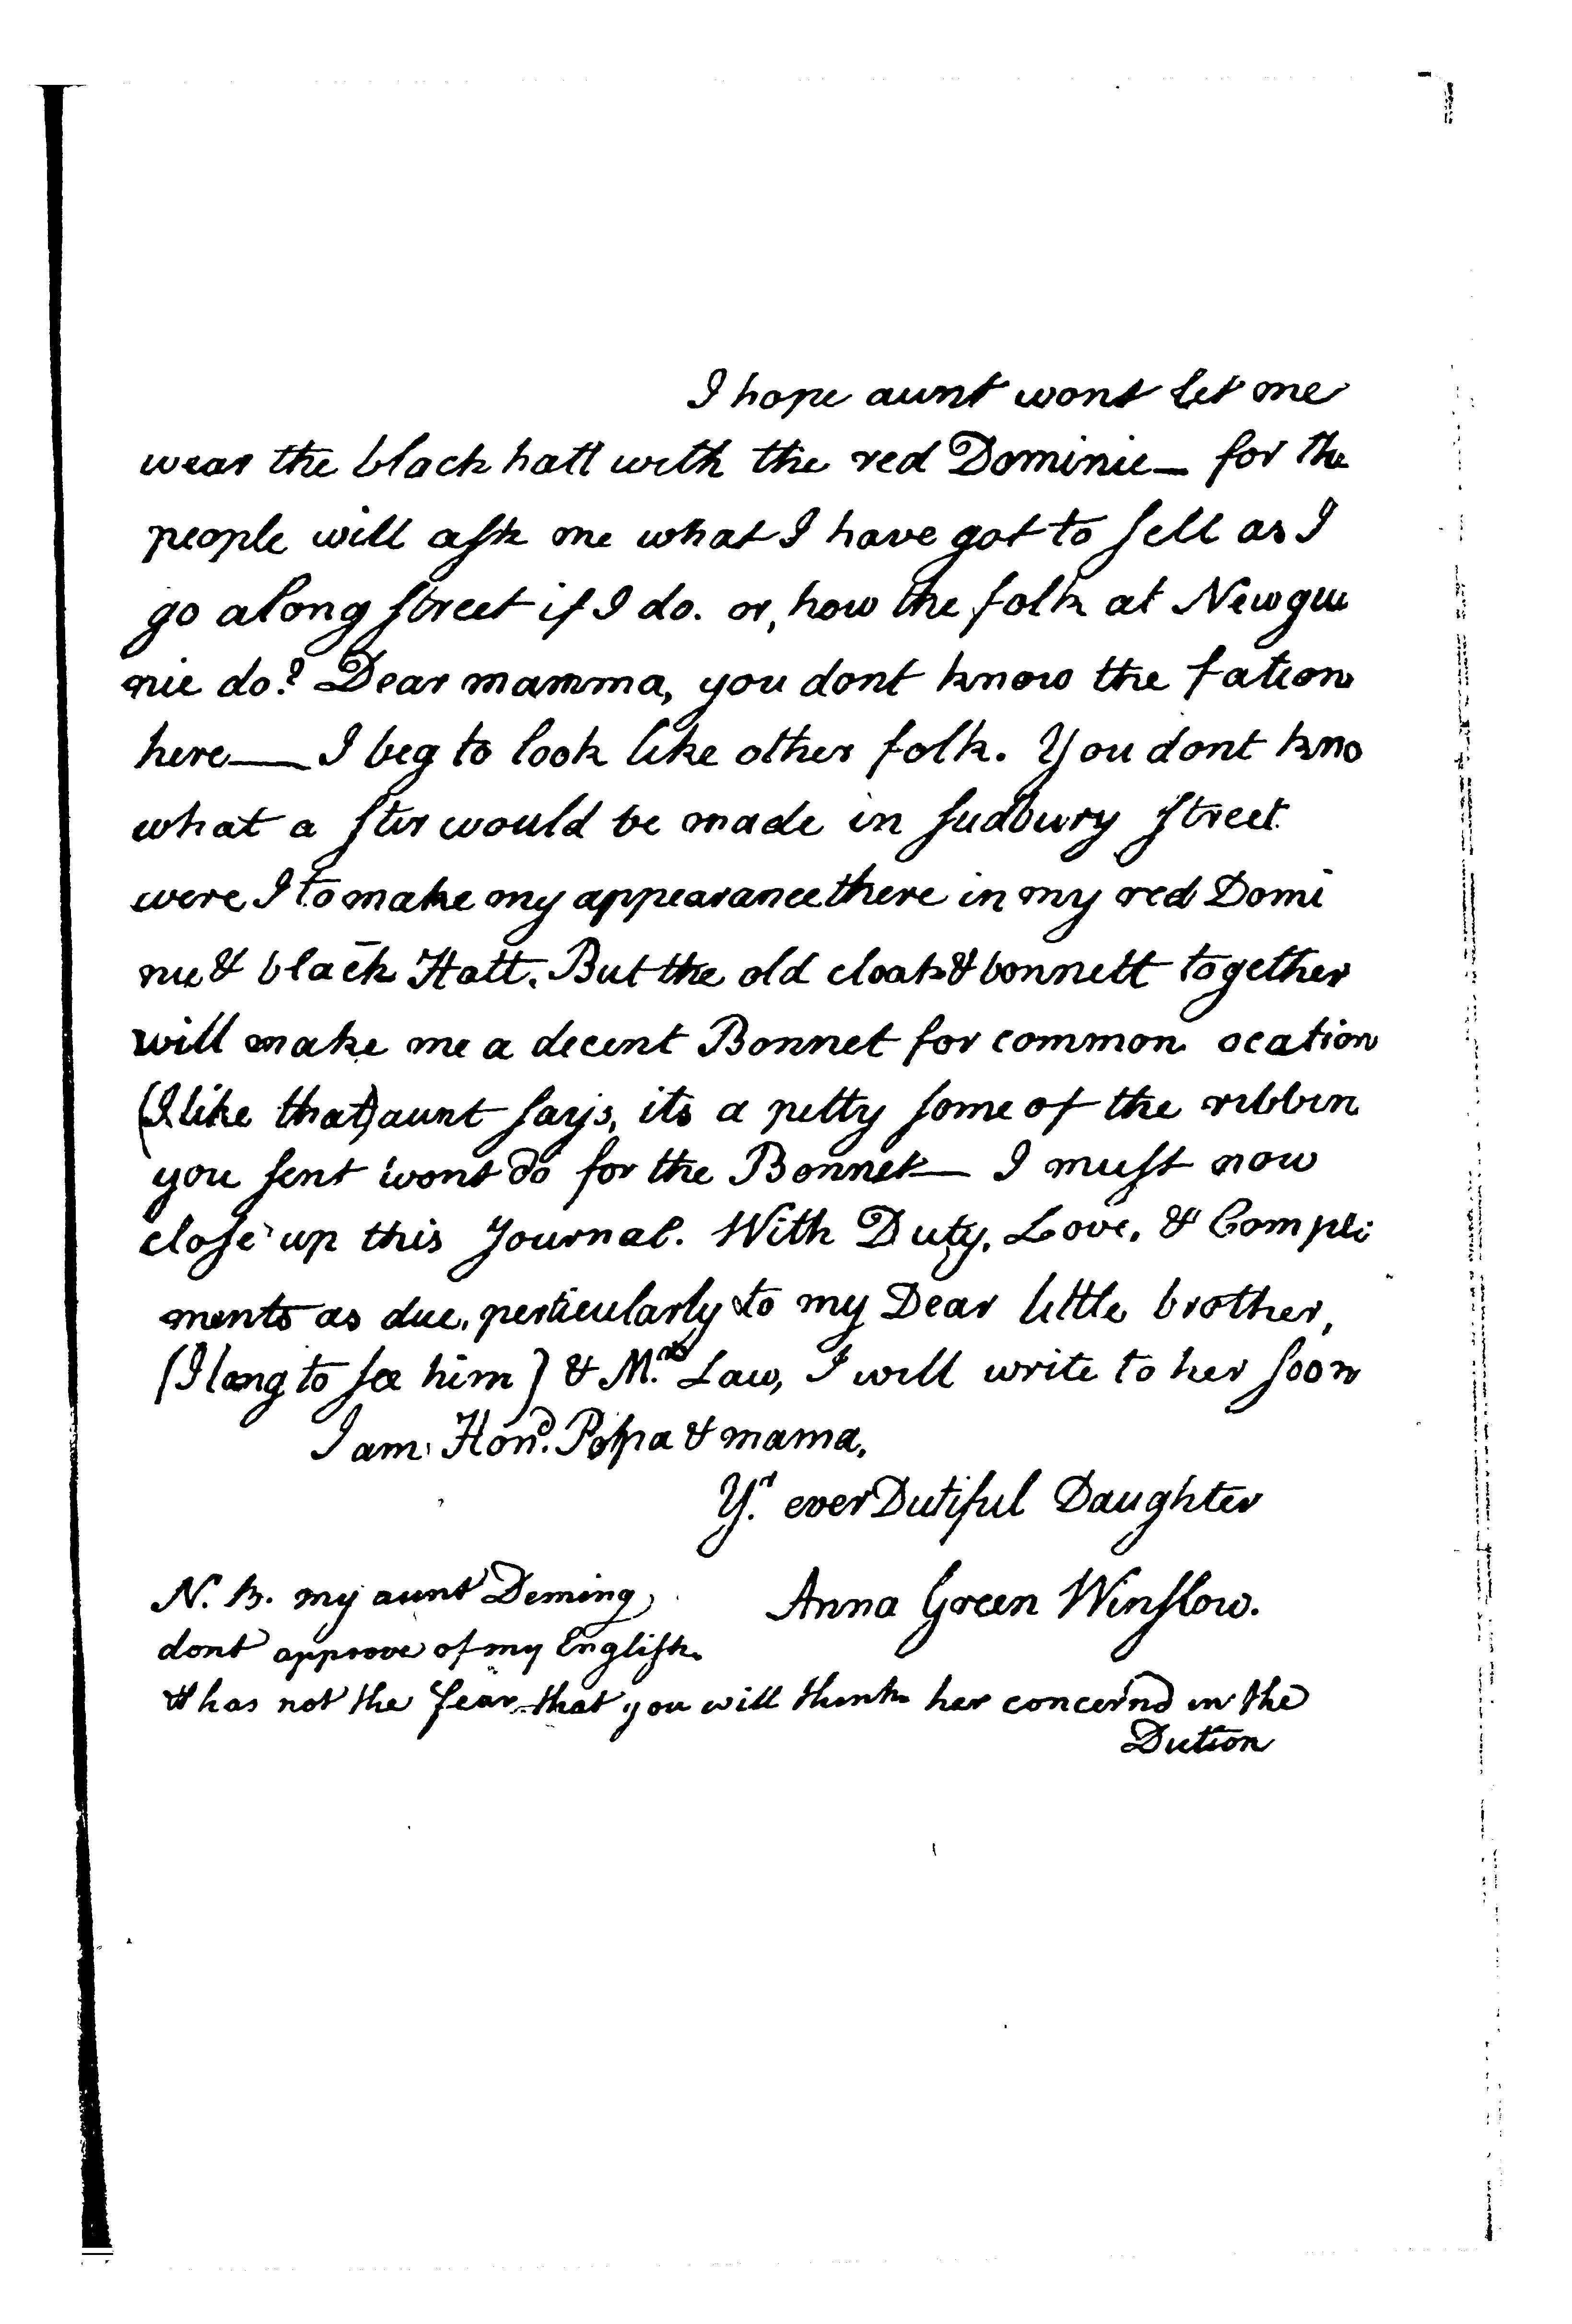 I hope aunt wont let me
wear the black hatt with the red Dominie— for the
people will ask me what I have got to sell as I
go along street if I do. or, how the folk at Newgui
nie do? Dear mamma, you dont know the fation
here— I beg to look like other folk. You dont kno
what a stir would be made in sudbury street
were I to make my appearance there in my red Domi
nie & black Hatt. But the old cloak & bonnett together
will make me a decent Bonnet for common ocation
(I like that) aunt says, its a pitty some of the ribbin
you sent wont do for the Bonnet— I must now
close up this Journal. With Duty, Love, & Compli
ments as due, perticularly to my Dear little brother,
(I long to see him) & M.rs Law, I will write to her soon
I am Hon.d Papa & mama,
Y.r ever Dutiful Daughter
Anna Green Winslow.
N. B. my aunt Deming
dont approve of my English.
& has not the fear that you will think her concernd in the
Diction